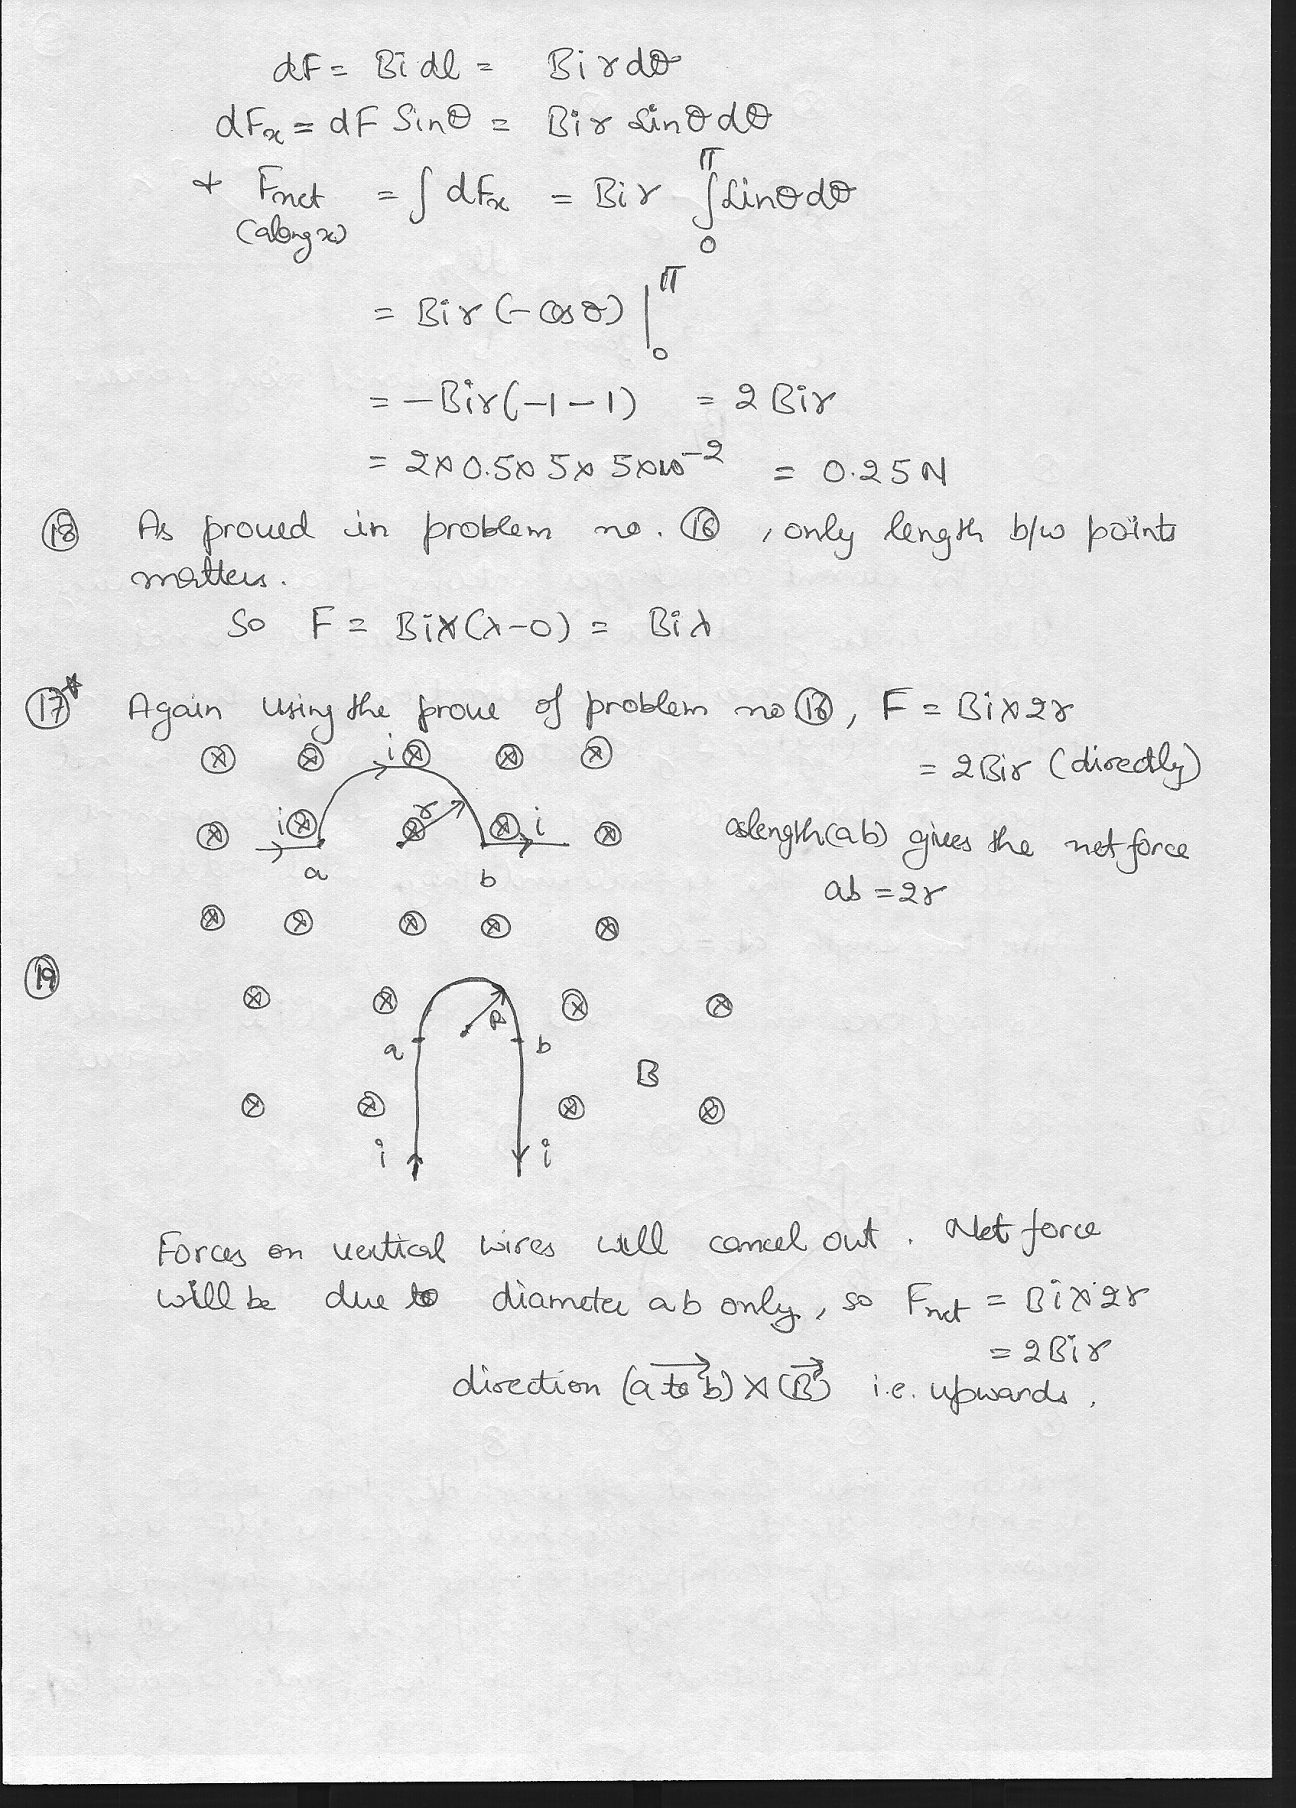 dF = Bi dl = Bi r dθ
dFx = dF Sinθ = Bi r Sinθ dθ
+ Fnet = ∫ dFx = Bi r ∫ Sinθ dθ
(along x)
π
0
= Bi r (- cos θ) |
π
0
= - Bir (-1 - 1) = 2 Bir
= 2 x 0.5 x 5 x 5 x 10^-2 = 0.25 N
(18) As proved in problem no. (16), only length b/w points
matters.
So F = Bi x (λ - 0) = Bi λ
(17)* Again using the prove of problem no (16), F = Bi x 2r
= 2Bir (directly)
i
i
r
i
a
b
as length(ab) gives the net force
ab = 2r
(19)
R
a
b
B
i
i
Forces on vertical wires will cancel out. Net force
will be due to diameter ab only, so Fnet = Bi x 2r
= 2Bir
direction (a to b) x (B) i.e. upwards.